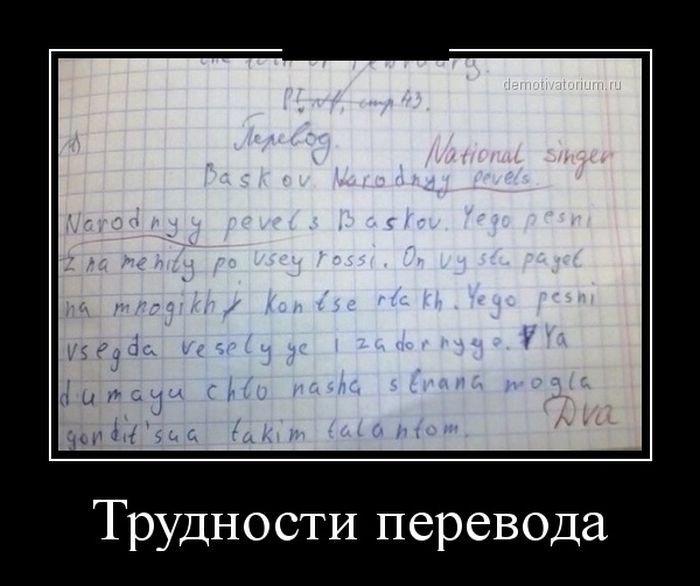 demotivatorium.ru
стр 43.
Перевод.
National singer
Baskov. Narodnyy pevets.
Narodnyy pevets Baskov. Yego pesni
znamenity po vsey rossi. On vystupayet
na mnogikh kontsertakh. Yego pesni
vsegda veselyye i zadornyye. Ya
dumayu chto nasha strana mogla
gordit'sya takim talantom.
Dva
Трудности перевода